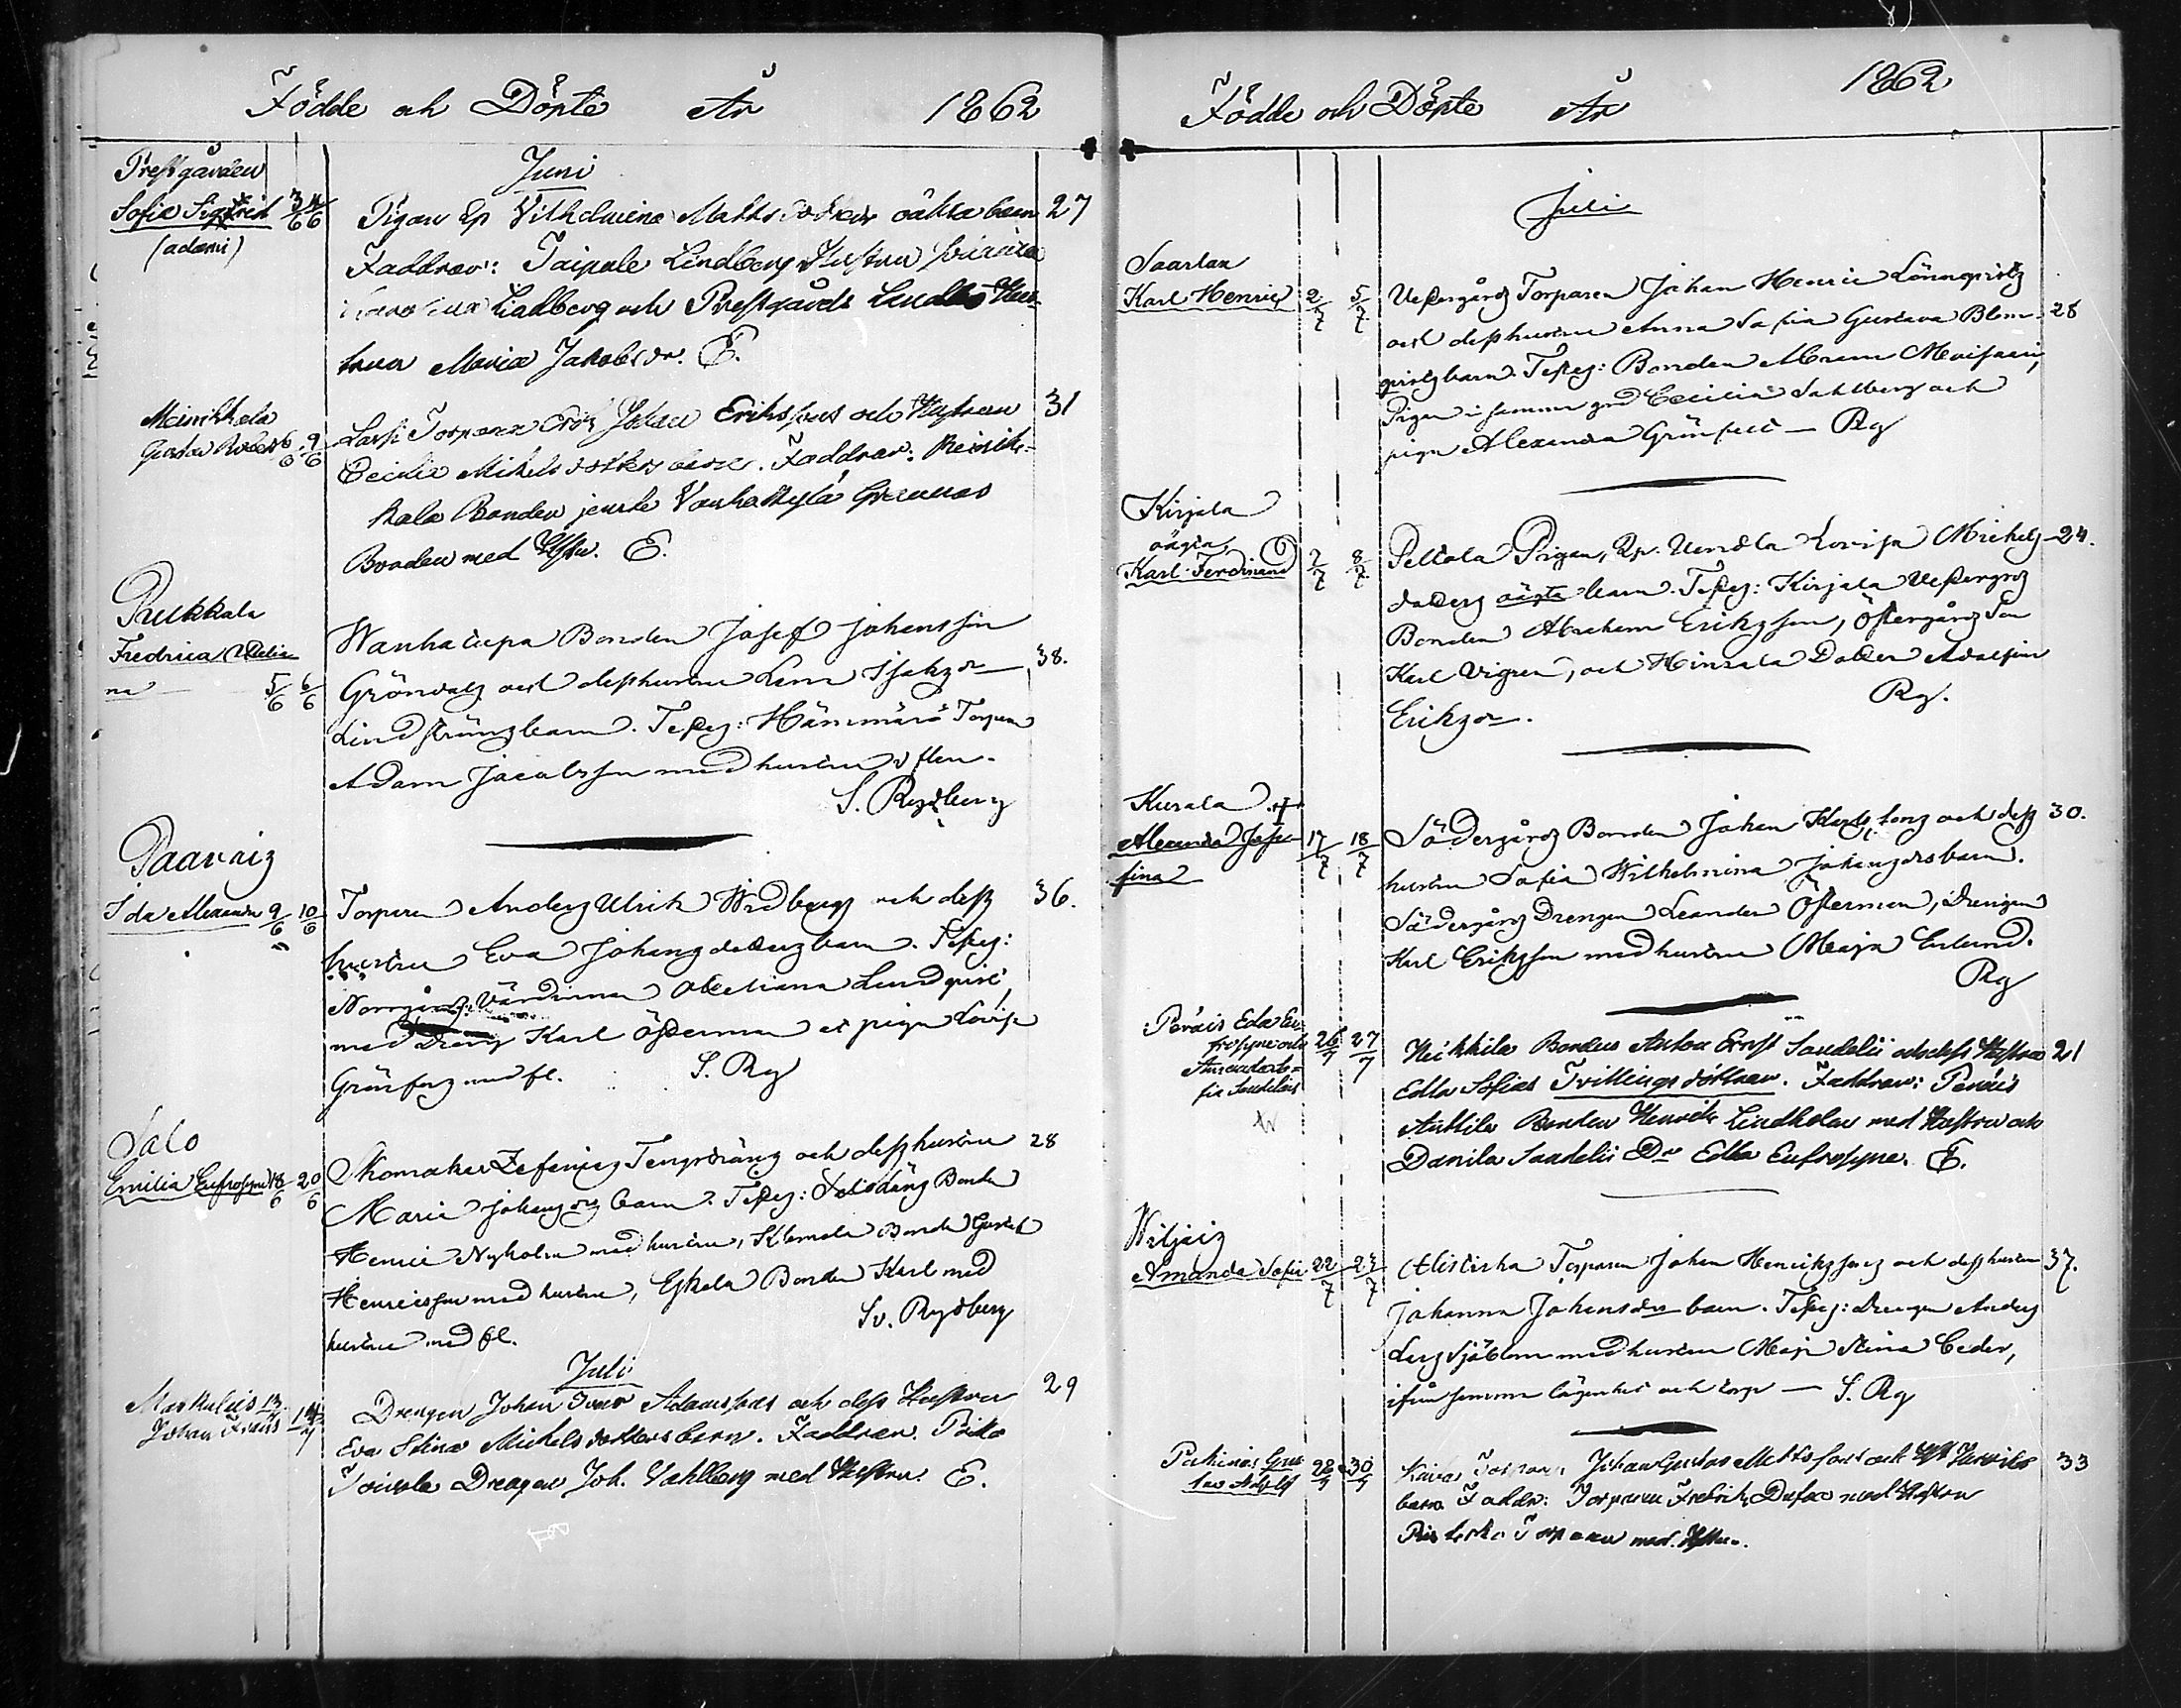 Födde och Döpte År 1862
Juni
Prestgården
Sofia Sigfrid 3/6 4/6
(adami)
Pigan Ep Vilhelmina Matts dotters oäkta barn 27
Faddrar: Taipale Lindberg Hustru
Lindberg och Prestgårds Hus-
trun Maria Jakobsdr. E.
Meinikkala
Gustav Robert 6/6 9/6
Lassi Torparen Erik Johan Erikssons och Hustrun 31
Cecilia Mikels dotters barn. Faddrar: Meinik-
kala Bonden jemte Vanhakylä Grannas
Bonden med Hstu. E.
Pukkala
Fredrica
na 5/6 6/6
Wanhatupa Bonden Josef Johansson
Gröndalz och dess hustru Lena Isakzdr 38.
Lindströmz barn. Testes: Hämmärö Torparen
Adam Jacobsson med hustru
S. Rydberg
Paavaiz
Ida Alexandra 9/6 10/6
Torparen Anderz Ulrik Widbergz och dess 36.
hustru Eva Johanz dotterz barn. Testes:
Norrgårdz Värdinnan Lundqvist,
med dreng Karl Österman et pigan Lovisa
Grönforz med fl. S. Rg
Salo
Emilia Eufrosyne 18/6 20/6
Skomakar Zefanias Tengströmz och dess hustru 28
Maria Johanzdrz barn. Testes: Bonden
Henric Nyholm med hustru, Klemola Bonden Gustaf
Henricsson med hustru, Eskola Bonden Karl med
hustru med fl. Sv. Rydberg
Juli
Markulais 13/7
Johan Frans 14/7
Drengen Johan Ivar Adamssons och dess Hustru 29
Eva Stina Michels dotters barn. Faddrar. Poiko
Toivola Drengen Joh. Vahlberg med Hustru. E.
Födde och Döpte År 1862
Juli
Saarlax
Karl Henric 2/7 5/7
Vestergårdz Torparen Johan Henric Lönnqvistz
och dess hustru Anna Sofia Gustava Blom- 28
qvistz barn. Testes: Bonden Abram
Pigan i samma gård Cecilia Sahlberg och
pigan Alexandra Grönqvist — Rg
Kirjala
oägta
Karl Ferdinand 7/7 8/7
Peltola Pigan, Ep. Vendla Lovisa Michelz 24.
dotterz oägta barn. Testes: Kirjala Vestergårdz
Bonden Abraham Erikzson, Östergårdz Son
Karl Vigren, och Hinsala Dotter Adolfina
Erikzdr. Rg.
Kurala
Alexandra Jose-
fina 17/7 18/7
Södergårdz Bonden Johan Karlssons och dess 30.
hustru Sofia Wilhelmina Johanzdrs barn.
Södergårdz Drengen Leander Österman, Drengen
Karl Erikzson med hustru Maja Erlund.
Rg
Peräis Eda Eu-
frosyne och
Amanda So-
fia Sandelin 26/7 27/7
Heikkilä Bonden Anton Ernst Sandelii och dess Hustru 21
Edla Sofias Tvillings döttrar. Faddrar: Peräis
Anttila Bonden Henrik Lindholm med Hustru och
Danila Sandelii Dr Edla Eufrosyne. E.
Wiljaiz
Amanda Sofia 22/7 27/7
Torparen Johan Henrikzsonz och dess hustru 37.
Johanna Johansdrs barn. Testes: Drengen Anderz
Sjöblom med hustru Maja Stina Ceder,
ifrån samma lägenhet och torp — S. Rg
Pahinais Gus-
tav Adolf 28/7 30/7
Torparen Johan Gustav Mattssons och Hst 33
barn Faddr: Torparen Fredrik med Hustru
Torparen med Hstru.